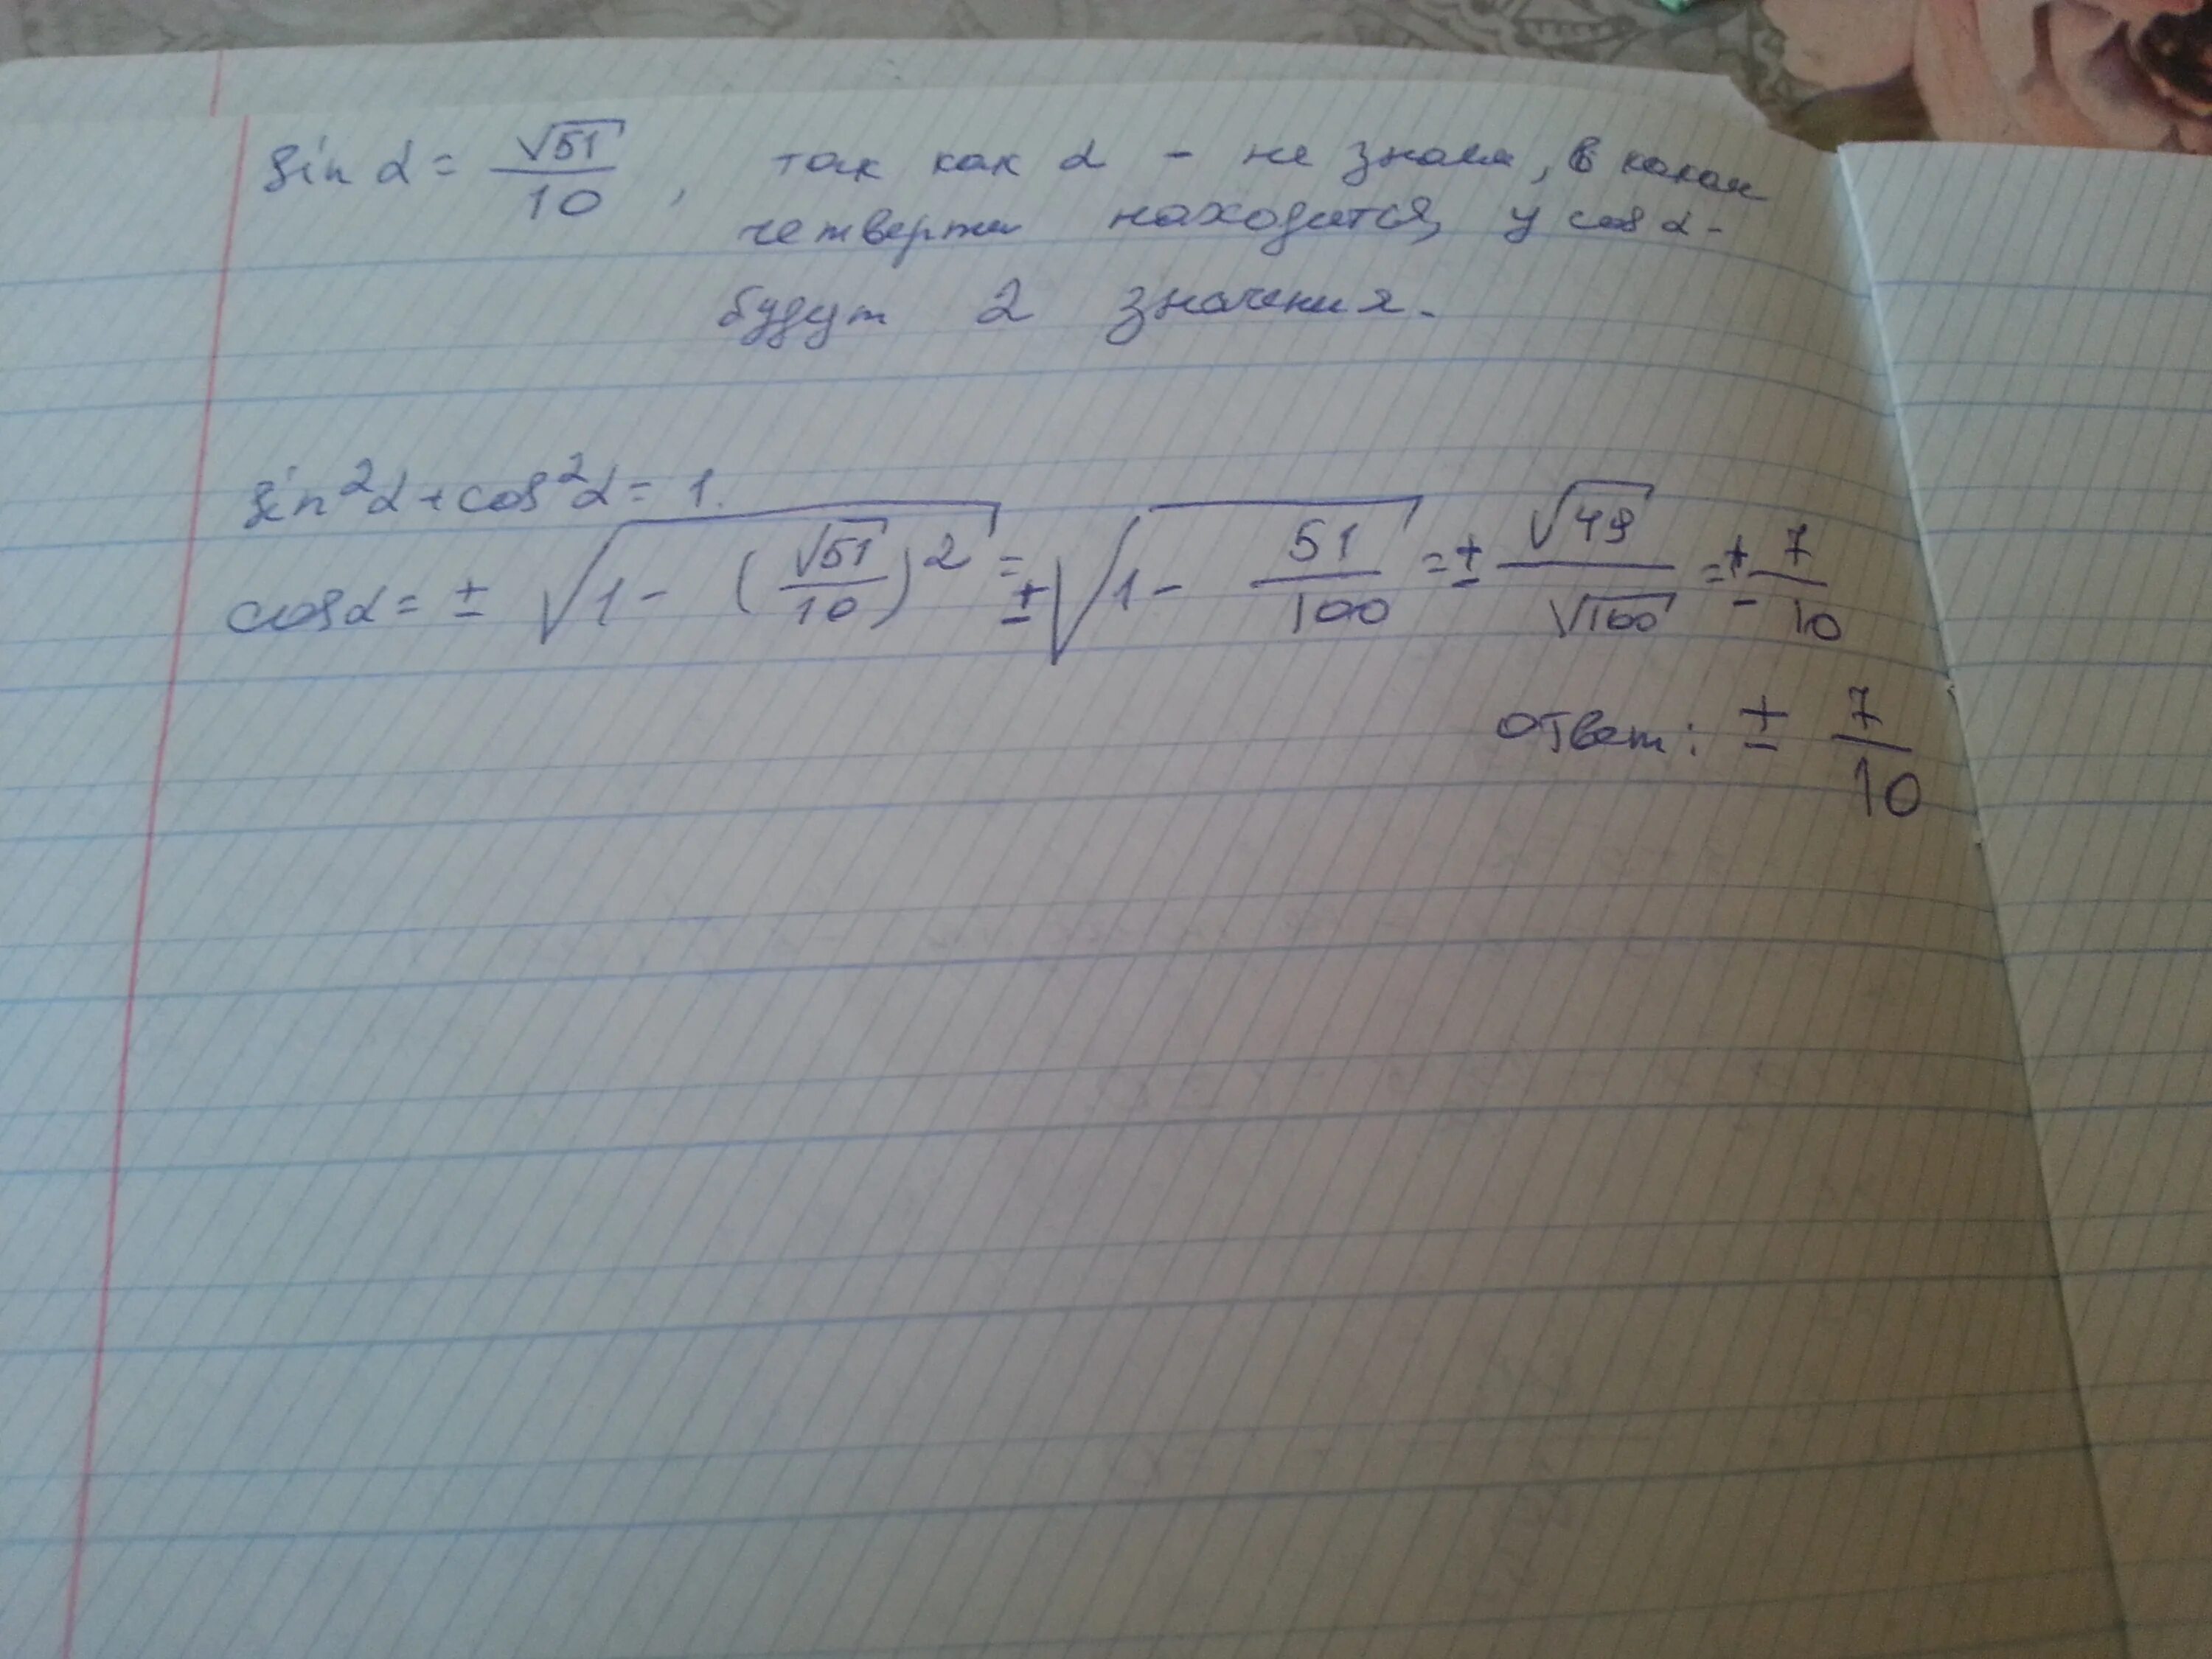 sin α = √51/10, так как α - не знаем, в какой
четверти находится, у cos α -
будут 2 значения.
sin²α + cos²α = 1.
cos α = ± √(1 - (√51/10)²) = ± √(1 - 51/100) = ± √49/√100 = ± 7/10
Ответ: ± 7/10